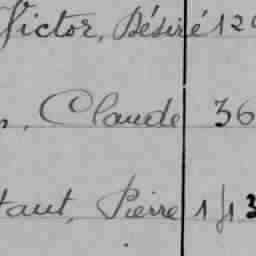 Victor, Désiré 12
, Claude 36
taut, Pierre 1